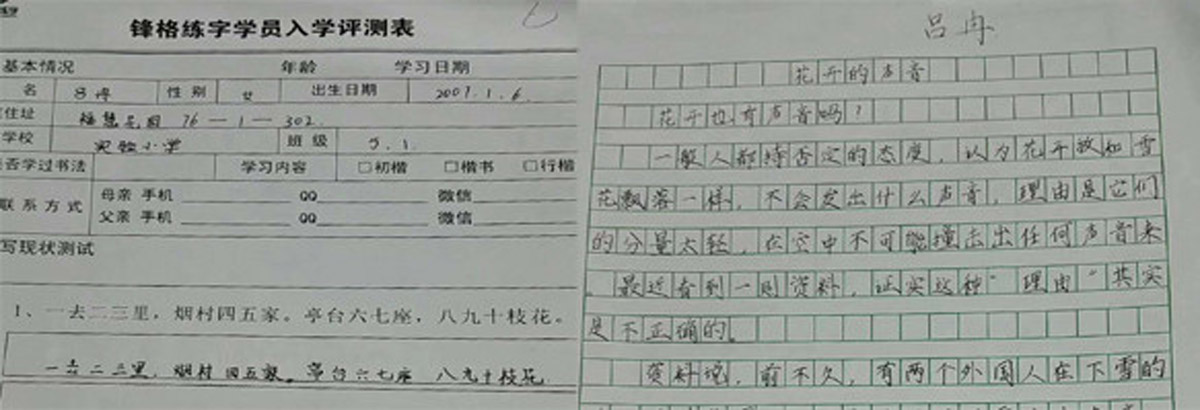 锋格练字学员入学评测表
基本情况 年龄 学习日期
名 吕 性别 女 出生日期 2007.1.6.
住址 福慧花园 76-1-302
学校 实验小学 班级 5.1
否学过书法 学习内容 □初楷 □楷书 □行楷
联系方式 母亲 手机 QQ 微信
父亲 手机 QQ 微信
写现状测试
1、一去二三里，烟村四五家。亭台六七座，八九十枝花。
一去二三里，烟村四五家。亭台六七座 八九十枝花
吕冉
花开的声音
花开也有声音吗？
一般人都持否定的态度，认为花开放如雪
花飘落一样，不会发出什么声音，理由是它们
的分量太轻，在空中不可能撞击出任何声音来
。最近看到一则资料，证实这种"理由"其实
是不正确的。
资料说，前不久，有两个外国人在下雪的